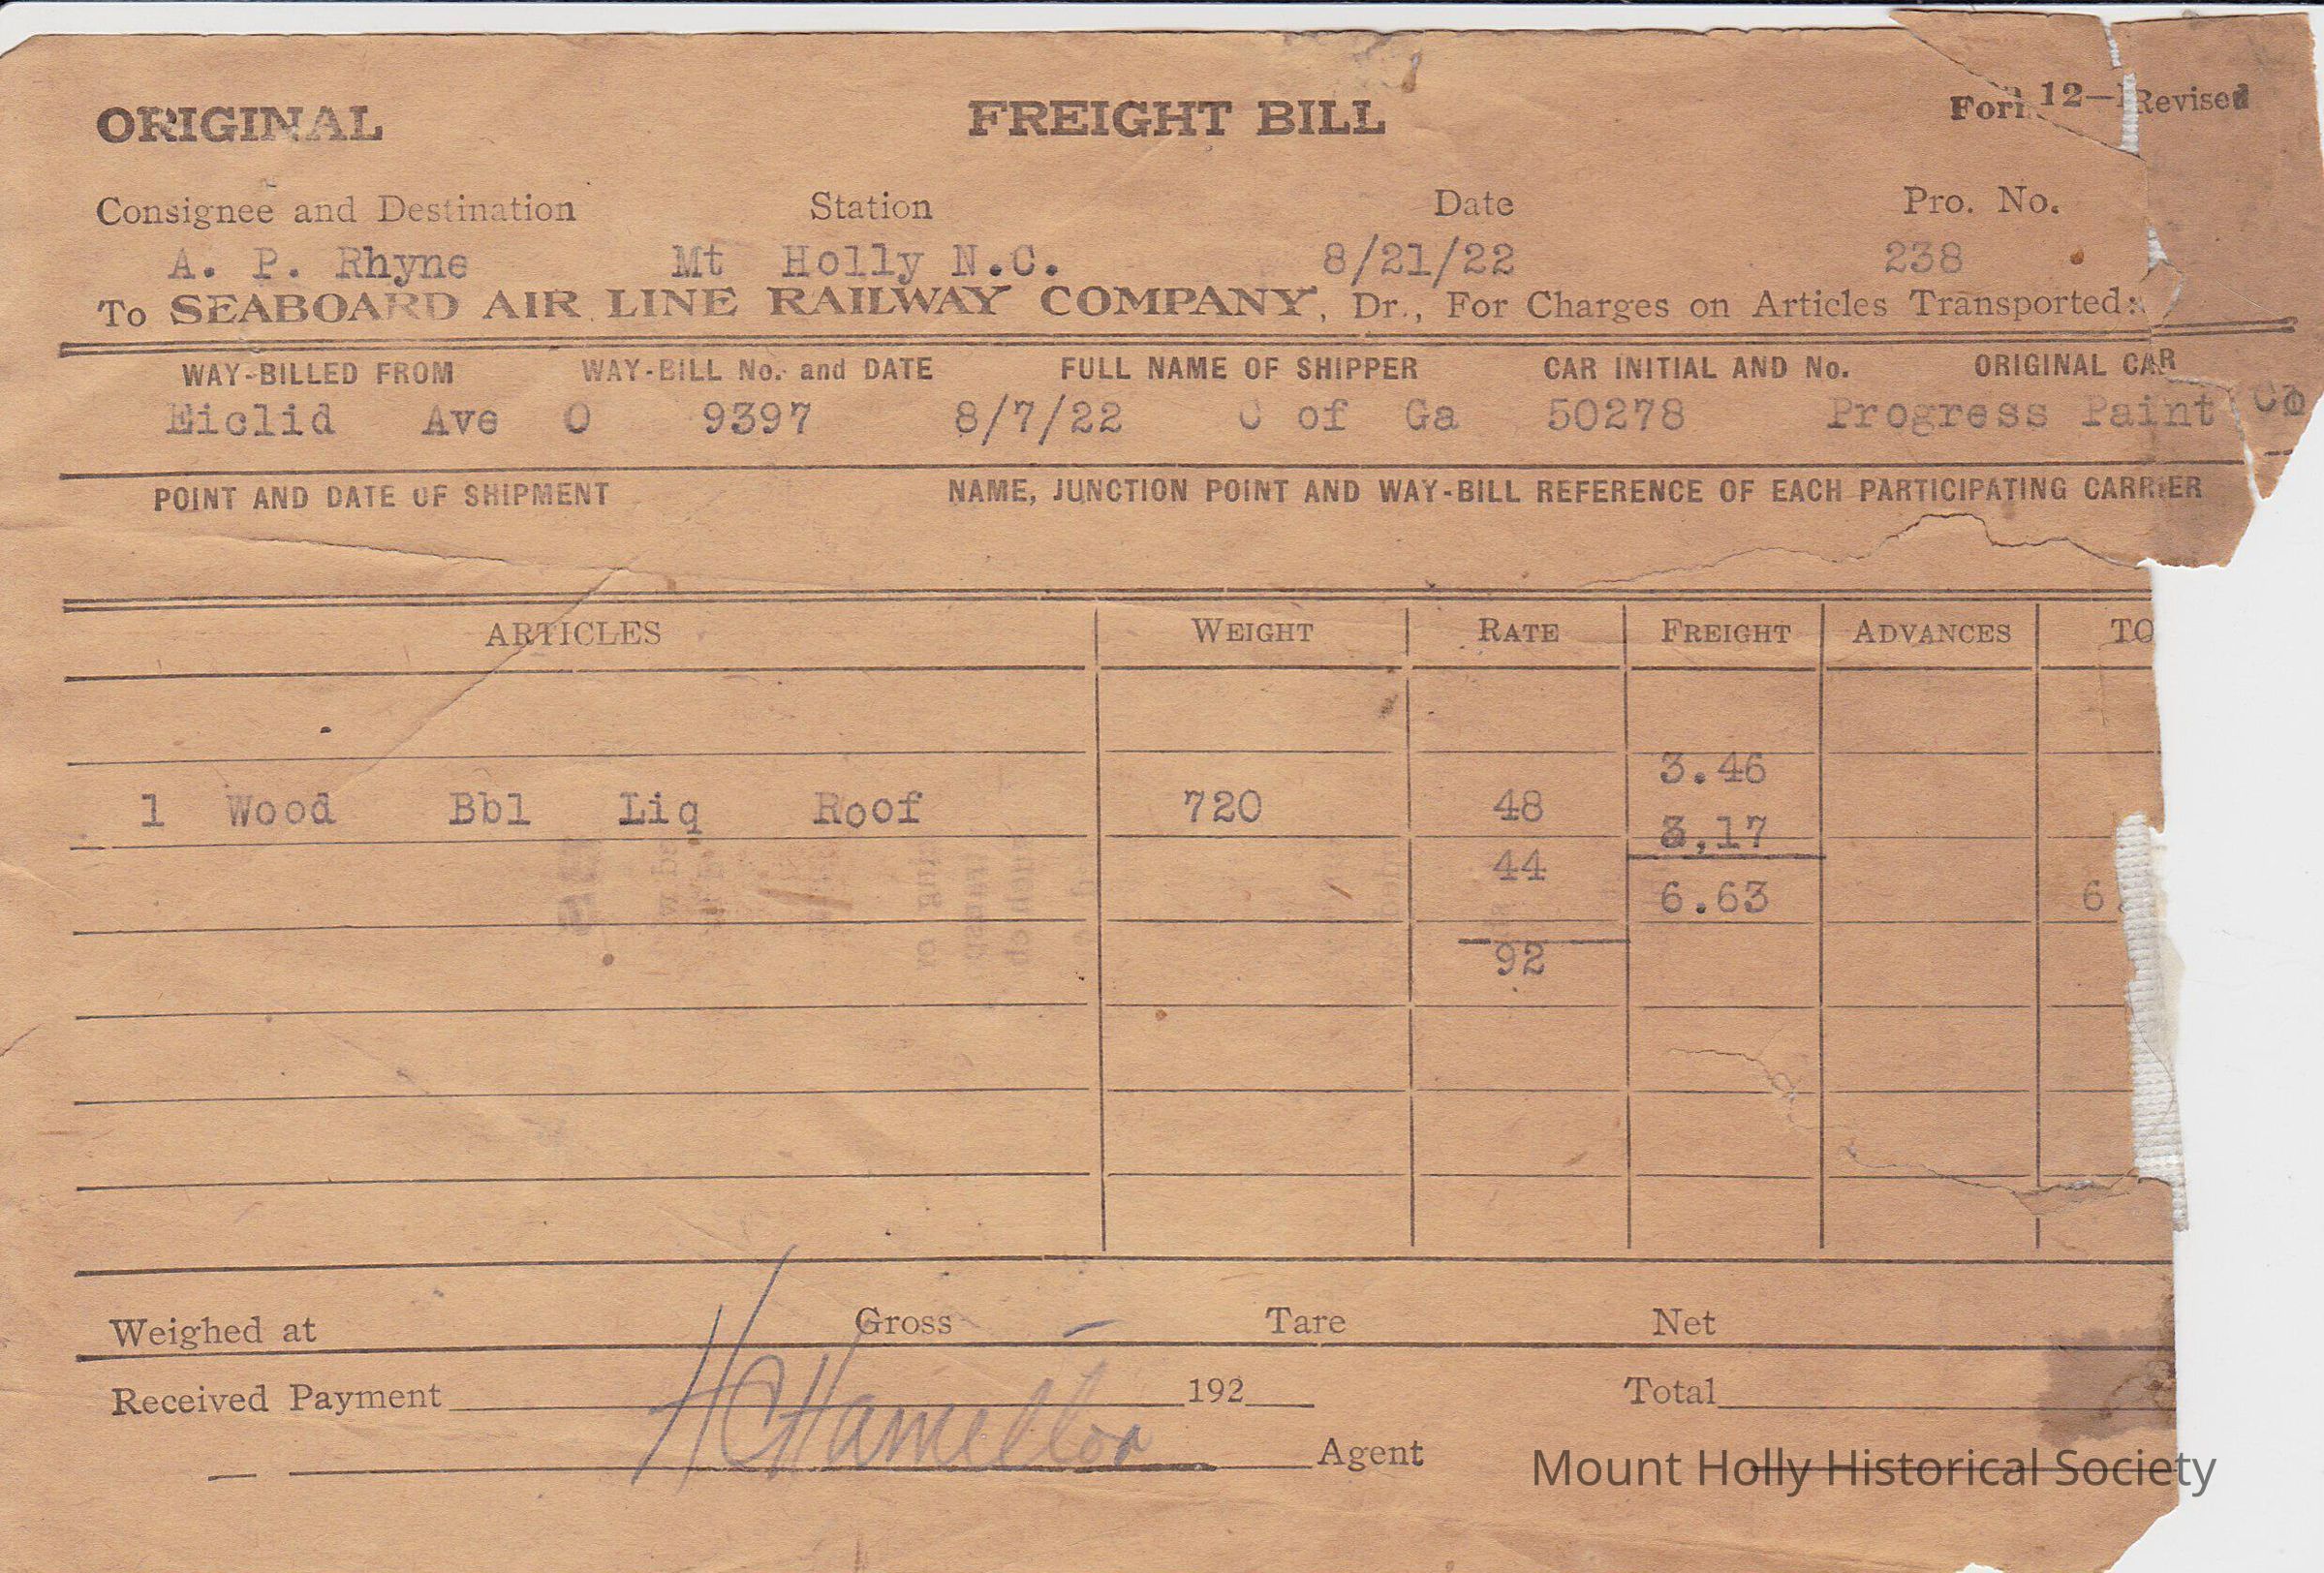 ORIGINAL FREIGHT BILL 12— Revised
Consignee and Destination Station Date Pro. No.
A. P. Rhyne Mt Holly N.C. 8/21/22 238
To SEABOARD AIR LINE RAILWAY COMPANY, Dr., For Charges on Articles Transported:
WAY-BILLED FROM WAY-BILL No. and DATE FULL NAME OF SHIPPER CAR INITIAL AND No. ORIGINAL CAR
Eiclid Ave O 9397 8/7/22 C of Ga 50278 Progress Paint Co
POINT AND DATE OF SHIPMENT NAME, JUNCTION POINT AND WAY-BILL REFERENCE OF EACH PARTICIPATING CARRIER
ARTICLES WEIGHT RATE FREIGHT ADVANCES TO
3.46
1 Wood Bbl Liq Roof 720 48
3.17
44
6.63 6
92
Weighed at Gross Tare Net
Received Payment 192 Total
H C Hamelton Agent
Mount Holly Historical Society